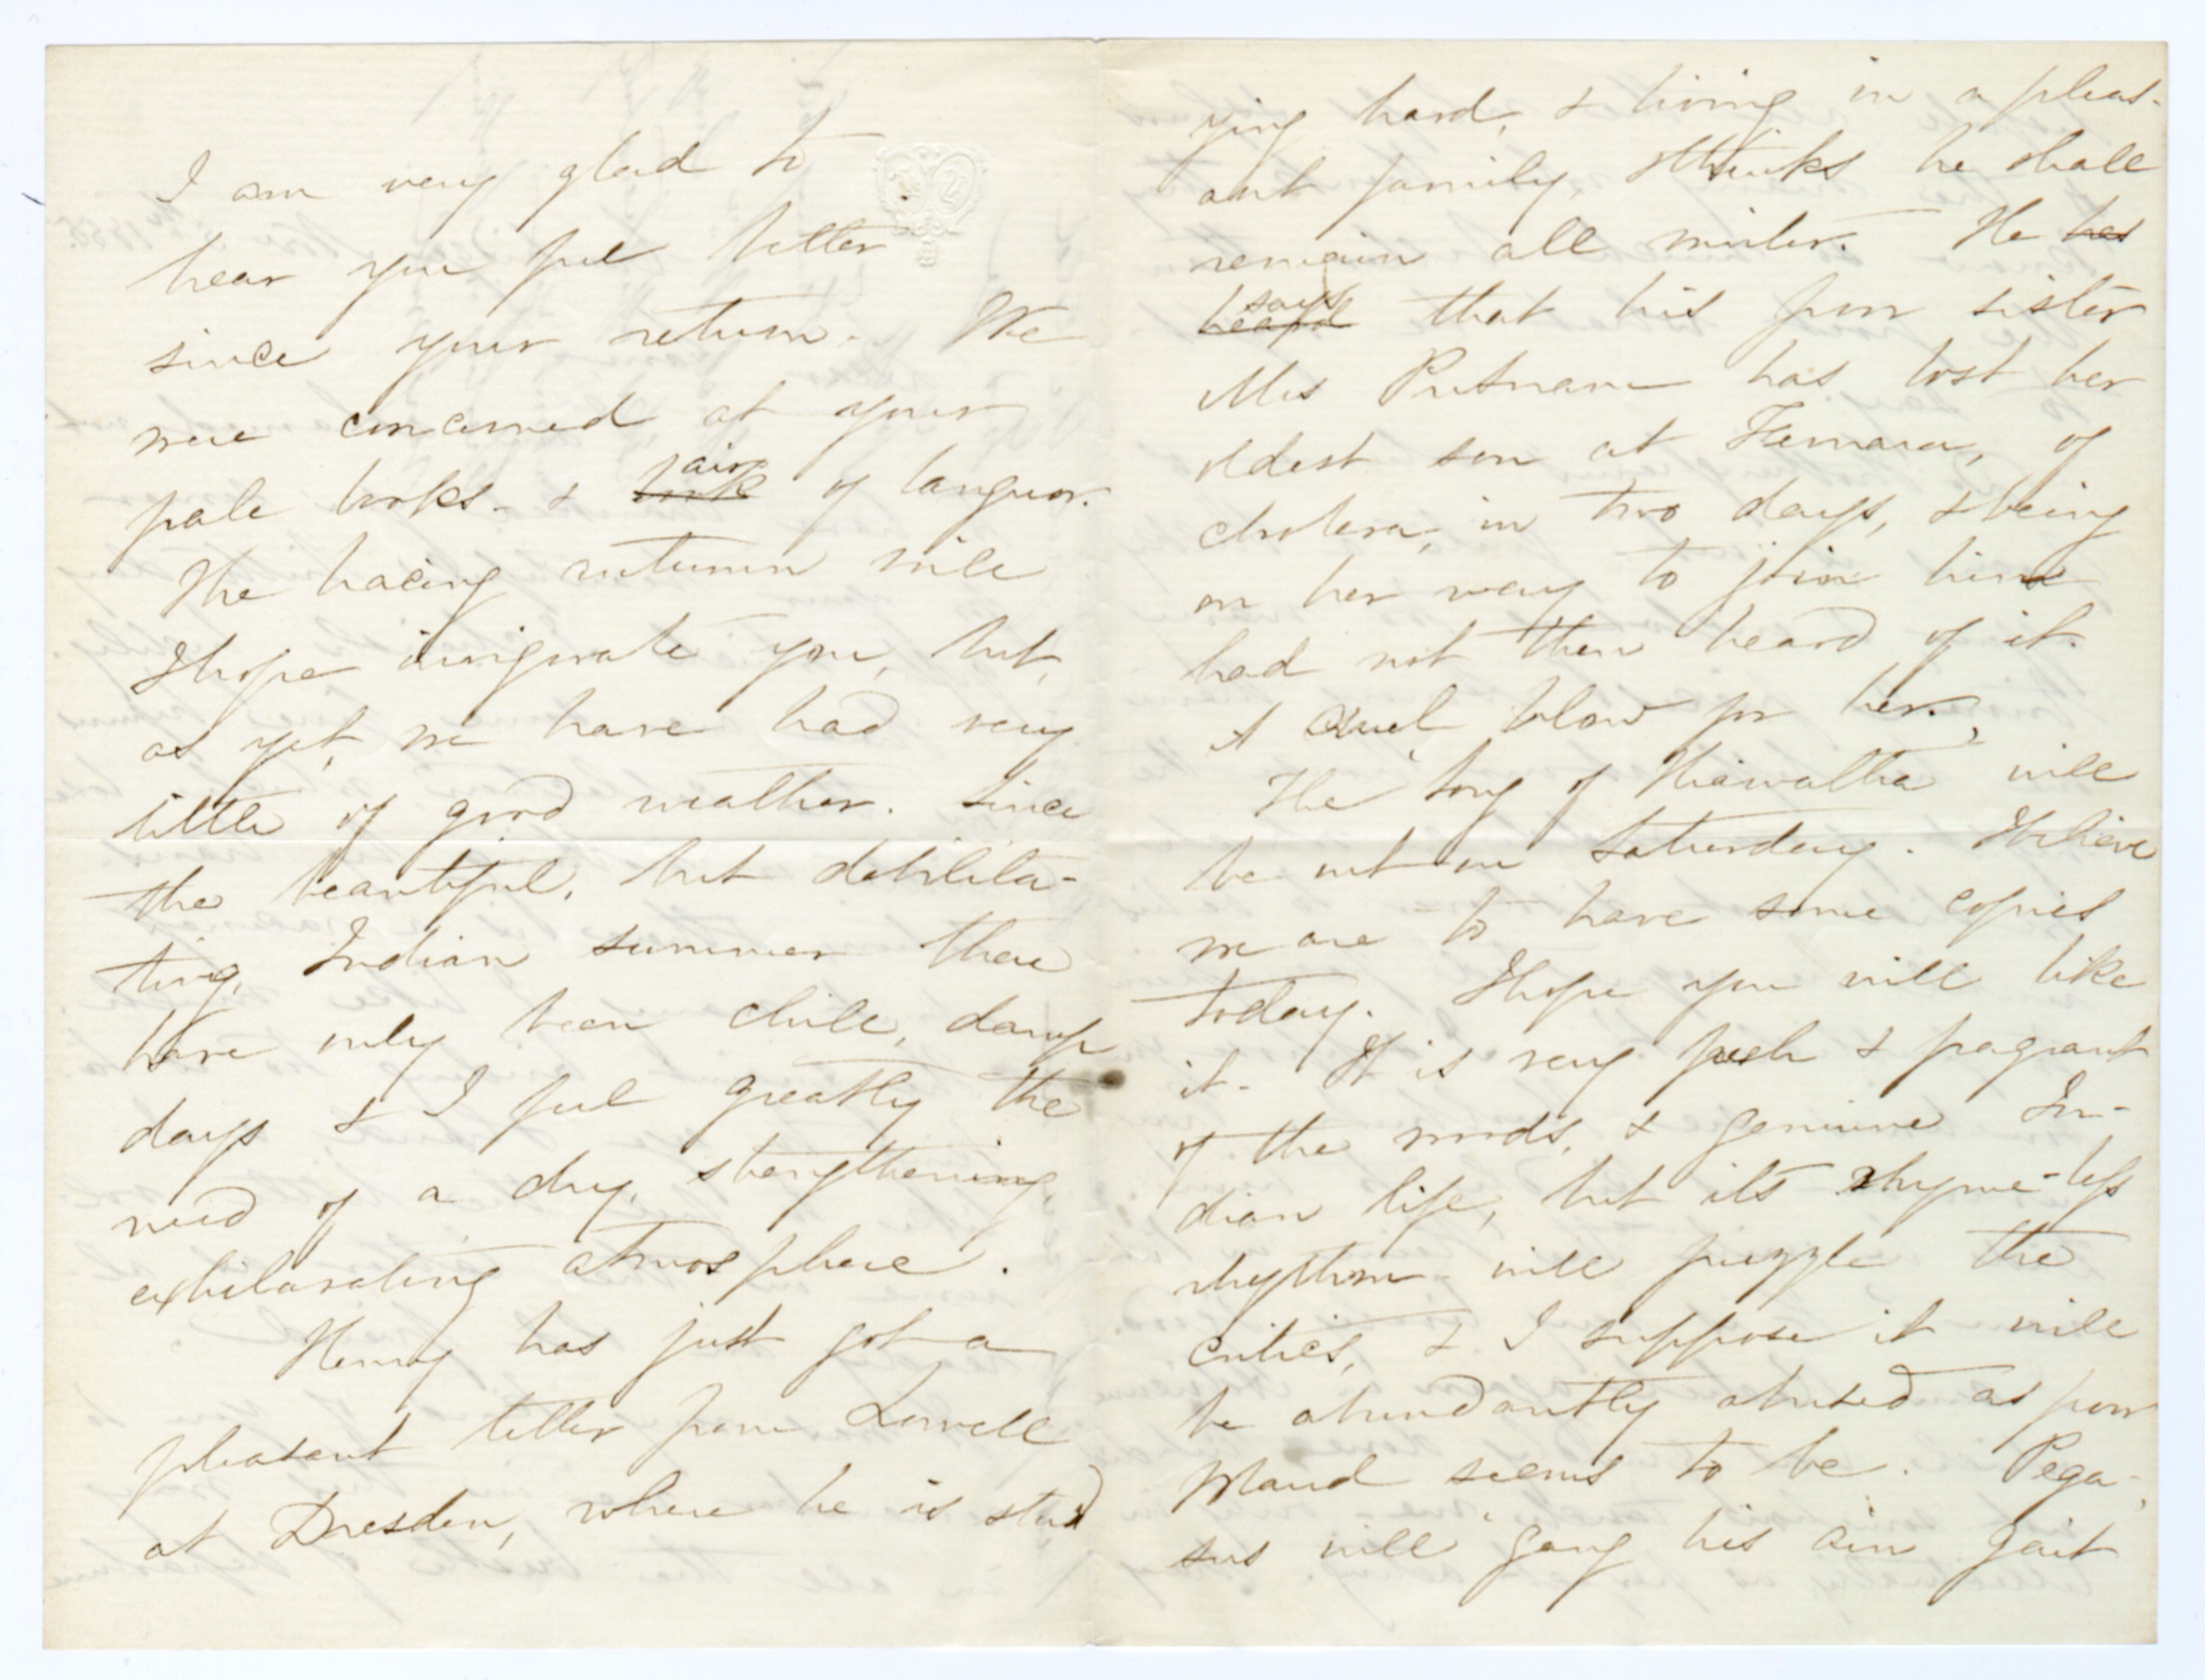 I am very glad to
hear you feel better
since your return. We
were concerned at your
pale looks & look air of languor.
The bracing autumn will
I hope invigorate you, but,
as yet, we have had very
little of good weather. Since
the beautiful, but debilita-
ting, Indian summer there
have only been chill, damp
days & I feel greatly the
need of a dry, strengthening,
exhilarating atmosphere.
Henry has just got a
pleasant letter from Lowell
at Dresden, where he is stud
ying hard, & living in a pleas-
ant family, & thinks he shall
remain all winter. He has
heard says that his poor sister
Mrs Putnam has lost her
oldest son at Femara, of
cholera, in two days, & being
on her way to join him
had not then heard of it.
A cruel blow for her.
The "Song of Hiawatha" will
be out on Saturday. I believe
we are to have some copies
today. I hope you will like
it. It is very fresh & fragrant
of the woods, & genuine In-
dian life, but its rhyme-less
rhythm will puzzle the
critics, & I suppose it will
be abundantly abused as poor
Maud seems to be. Pega-
sus will "gang his ain gait